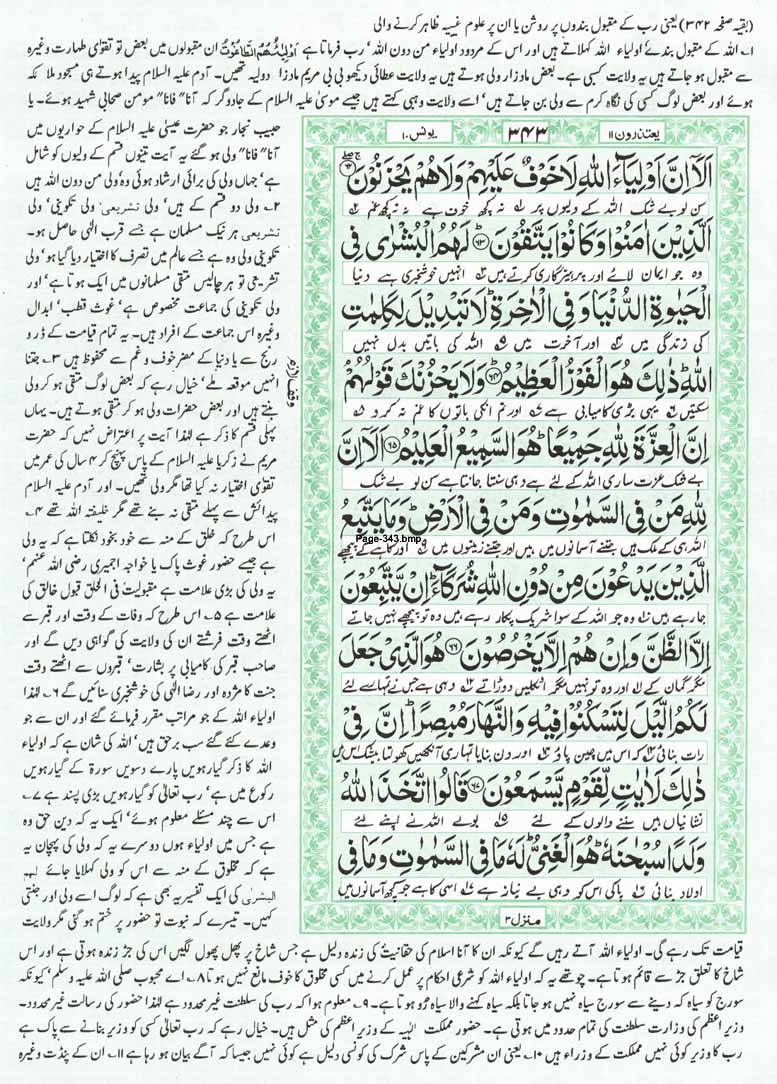 (بقیہ صفحہ ۳۴۲) یعنی رب کے مقبول بندوں پر روشن یا ان پر علوم غیبیہ ظاہر کرنے والی
۱۔ اللہ کے مقبول بندے اولیاء اللہ کہلاتے ہیں اور اس کے مردود اولیاء من دون اللہ‘ رب فرماتا ہے اَوْلِيٰٓئُهُمُ الطَّاغُوْتُ ان مقبولوں میں بعض تو تقوٰی طہارت وغیرہ
سے مقبول ہو جاتے ہیں یہ ولایت کسبی ہے۔ بعض مادر زاد ولی ہوتے ہیں یہ ولایت عطائی دیکھو بی بی مریم مادر زا دولیہ تھیں۔ آدم علیہ السلام پیدا ہوتے ہی مسجود ملا ئکہ
ہوئے اور بعض لوگ کسی کی نگاہ کرم سے ولی بن جاتے ہیں‘ اسے ولایت وہبی کہتے ہیں جیسے موسیٰ علیہ السلام کے جادوگر کہ آنا" فانا" مومن صحابی شہید ہوئے۔ یا
حبیب نجار جو حضرت عیسیٰ علیہ السلام کے حواریوں میں
آنا" فانا" ولی ہو گئے یہ آیت تینوں قسم کے ولیوں کو شامل
ہے‘ جہاں ولی کی برائی ارشاد ہوئی وہ‘ ولی من دون اللہ ہیں
۲۔ ولی دو قسم کے ہیں‘ ولی تشریعی‘ ولی تکوینی‘ ولی
تشریعی ہر نیک مسلمان ہے جسے قرب الٰہی حاصل ہو۔
تکوینی ولی وہ ہے جسے عالم میں تصرف کا اختیار دیا گیا ہو‘ ولی
تشریعی تو ہر چالیس متقی مسلمانوں میں ایک ہوتا ہے‘ اور
ولی تکوینی کی جماعت مخصوص ہے‘ غوث قطب‘ ابدال
وغیرہ اس جماعت کے افراد ہیں۔ یہ تمام قیامت کے ڈر و
رنج سے یا دنیا کے مضر خوف و غم سے محفوظ ہیں ۳۔ جتنا
انہیں موقعہ ملے‘ خیال رہے کہ بعض لوگ متقی ہو کر ولی
بنتے ہیں اور بعض حضرات ولی ہو کر متقی ہوتے ہیں۔ یہاں
پہلی قسم کا ذکر ہے لہٰذا آیت پر اعتراض نہیں کہ حضرت
مریم نے زکریا علیہ السلام کے پاس پہنچ کر ۴ سال کی عمر میں
تقوٰی اختیار نہ کیا تھا مگر ولی تھیں۔ اور آدم علیہ السلام
پیدائش سے پہلے متقی نہ بنے تھے مگر خلیفتہ اللہ تھے ۴۔
اس طرح کہ خلق کے منہ سے خود بخود نکلتا ہے کہ یہ ولی
ہے جیسے حضور غوث پاک یا خواجہ اجمیری رضی اللہ عنہم‘
یہ ولی کی بڑی علامت ہے مقبولیت فی الخلق قبول خالق کی
علامت ہے ۵۔ اس طرح کہ وفات کے وقت اور قبر سے
اٹھتے وقت فرشتے ان کی ولایت کی گواہی دیں گے اور
صاحب قبر کی کامیابی پر بشارت‘ قبروں سے اٹھتے وقت
جنت کا مژدہ اور رضا الٰہی کی خوشخبری سنائیں گے ۶۔ لہٰذا
اولیاء اللہ کے جو مراتب مقرر فرمائے گئے اور ان سے جو
وعدے کئے گئے سب برحق ہیں‘ اللہ کی شان ہے کہ اولیاء
اللہ کا ذکر گیارہویں پارے دسویں سورۃ کے گیارہویں
رکوع میں ہے‘ رب تعالیٰ کو گیارہویں بڑی پسند ہے ۷۔
اس سے چند مسئلے معلوم ہوئے‘ ایک یہ کہ دین حق وہ
ہے جس میں اولیاء ہوں دوسرے یہ کہ ولی کی پہچان یہ
ہے کہ مخلوق کے منہ سے اس کو ولی کہلایا جائے لہم
البشریٰ کی ایک تفسیر یہ بھی ہے کہ لوگ اسے ولی اور جنتی
کہیں۔ تیسرے کہ نبوت تو حضور پر ختم ہو گئی مگر ولایت
یعتذرون ۱۱
۳۴۳
یونس ۱۰
اَلَاۤ اِنَّ اَوْلِيَآءَ اللّٰهِ لَا خَوْفٌ عَلَيْهِمْ وَلَا هُمْ يَحْزَنُوْنَ ۶۲
سن لو بے شک اللہ کے ولیوں پر نہ کچھ خوف ہے نہ کچھ غم
الَّذِيْنَ اٰمَنُوْا وَكَانُوْا يَتَّقُوْنَ ۶۳ لَهُمُ الْبُشْرٰى فِى
وہ جو ایمان لائے اور پرہیزگاری کرتے ہیں انہیں خوشخبری ہے دنیا
الْحَيٰوةِ الدُّنْيَا وَفِى الْاٰخِرَةِ لَا تَبْدِيْلَ لِكَلِمٰتِ
کی زندگی میں اور آخرت میں اللہ کی باتیں بدل نہیں
اللّٰهِ ذٰلِكَ هُوَ الْفَوْزُ الْعَظِيْمُ ۶۴ وَلَا يَحْزُنْكَ قَوْلُهُمْ
سکتیں یہی بڑی کامیابی ہے اور تم انکی باتوں کا غم نہ کرو
اِنَّ الْعِزَّةَ لِلّٰهِ جَمِيْعًا هُوَ السَّمِيْعُ الْعَلِيْمُ ۶۵ اَلَاۤ اِنَّ
بے شک عزت ساری اللہ کے لئے ہے وہی سنتا جانتا ہے سن لو بے شک
لِلّٰهِ مَنْ فِى السَّمٰوٰتِ وَمَنْ فِى الْاَرْضِ وَمَا يَتَّبِعُ
Page-343.bmp
اللہ ہی کے ملک ہیں جتنے آسمانوں میں ہیں اور جتنے زمینوں میں اور کاہے کے پیچھے
الَّذِيْنَ يَدْعُوْنَ مِنْ دُوْنِ اللّٰهِ شُرَكَآءَ اِنْ يَّتَّبِعُوْنَ
جا رہے ہیں وہ جو اللہ کے سوا شریک پکار رہے ہیں وہ تو پیچھے نہیں جاتے
اِلَّا الظَّنَّ وَاِنْ هُمْ اِلَّا يَخْرُصُوْنَ ۶۶ هُوَ الَّذِىْ جَعَلَ
مگر گمان کے اور وہ تو نہیں مگر اٹکلیں دوڑاتے وہی ہے جس نے تمہارے لئے
لَكُمُ الَّيْلَ لِتَسْكُنُوْا فِيْهِ وَالنَّهَارَ مُبْصِرًا اِنَّ فِىْ
رات بنائی کہ اس میں چین پاؤ اور دن بنایا تمہاری آنکھیں کھولتا بیشک اس میں
ذٰلِكَ لَاٰيٰتٍ لِّقَوْمٍ يَّسْمَعُوْنَ ۶۷ قَالُوا اتَّخَذَ اللّٰهُ
نشانیاں ہیں سننے والوں کے لئے بولے اللہ نے اپنے لئے
وَلَدًا سُبْحٰنَهٗ هُوَ الْغَنِىُّ لَهٗ مَا فِى السَّمٰوٰتِ وَمَا فِى
اولاد بنائی پاکی اس کو وہی بے نیاز ہے اسی کا ہے جو کچھ آسمانوں میں
منزل ۳
قیامت تک رہے گی۔ اولیاء اللہ آتے رہیں گے کیونکہ ان کا آنا اسلام کی حقانیت کی زندہ دلیل ہے جس شاخ پر پھل پھول لگیں اس کی جڑ زندہ ہوتی ہے اور اس
شاخ کا تعلق جڑ سے قائم ہوتا ہے۔ چوتھے یہ کہ اولیاء اللہ کو شرعی احکام پر عمل کرنے میں کسی مخلوق کا خوف مانع نہیں ہوتا ۸۔ اے محبوب صلی اللہ علیہ وسلم‘ کیونکہ
سورج کو سیاہ کہہ دینے سے سورج سیاہ نہیں ہو جاتا بلکہ سیاہ کہنے والا سیاہ رو ہوتا ہے۔ ۹۔ معلوم ہوا کہ رب کی سلطنت غیر محدود ہے لہٰذا حضور کی رسالت غیر محدود۔
وزیر اعظم کی وزارت سلطنت کی تمام حدود میں ہوتی ہے۔ حضور مملکت الٰہیہ کے وزیر اعظم کی مثل ہیں۔ خیال رہے کہ رب تعالیٰ کسی کو وزیر بنانے سے پاک ہے
رب کا وزیر کوئی نہیں مملکت کے وزراء ہیں ۱۰۔ یعنی ان مشرکین کے پاس شرک کی کونسی دلیل ہے کوئی نہیں جیسا کہ آگے بیان ہو رہا ہے ۱۱۔ ان کے پنڈت وغیرہ